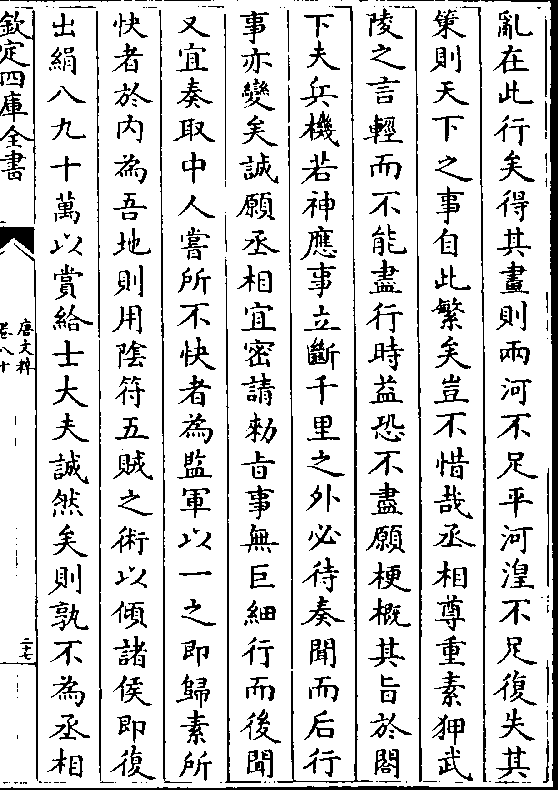 亂在此行矣得其畫則兩河不足平河湟不足復失其
策則天下之事自此繁矣豈不惜哉丞相尊重素狎武
陵之言輕而不能盡行時益恐不盡願梗概其旨於閣
下夫兵機若神應事立斷千里之外必待奏聞而后行
事亦變矣誠願丞相宜密請勑旨事無巨細行而後聞
又宜奏取中人嘗所不快者為監軍以一之即歸素所
快者於內為吾地則用陰符五賊之術以傾諸侯即復
出絹八九十萬以賞給士大夫誠然矣則孰不為丞相
欽定四庫全書
唐文粹
卷八十
二十七